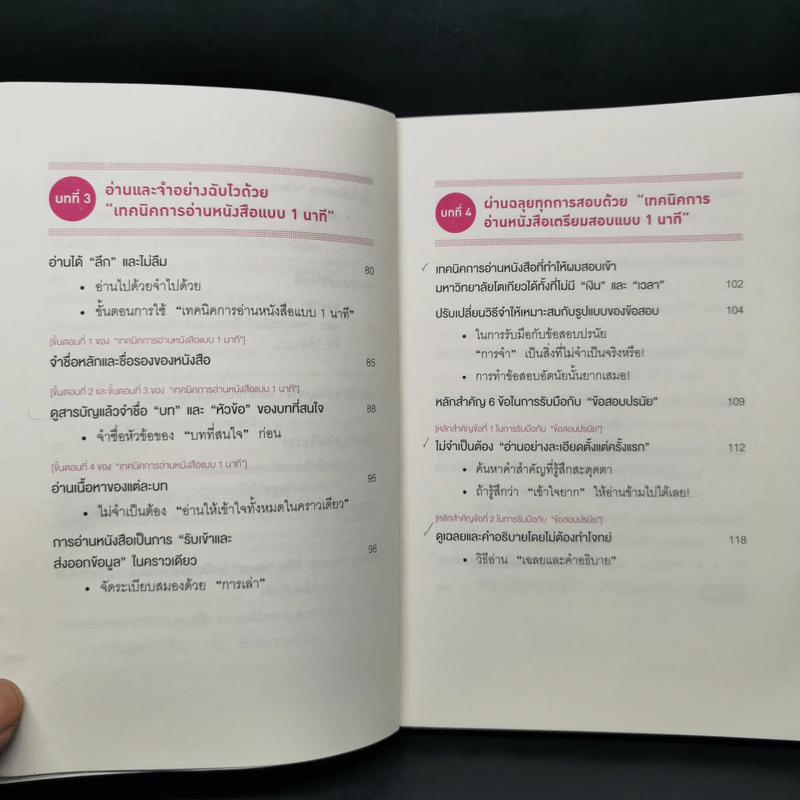 บทที่ 3
อ่านและจำอย่างฉับไวด้วย
“เทคนิคการอ่านหนังสือแบบ 1 นาที”
อ่านได้ “ลึก” และไม่ลืม 80
• อ่านไปด้วยจำไปด้วย
• ขั้นตอนการใช้ “เทคนิคการอ่านหนังสือแบบ 1 นาที”
[ขั้นตอนที่ 1 ของ “เทคนิคการอ่านหนังสือแบบ 1 นาที”]
จำชื่อหลักและชื่อรองของหนังสือ 85
[ขั้นตอนที่ 2 และขั้นตอนที่ 3 ของ “เทคนิคการอ่านหนังสือแบบ 1 นาที”]
ดูสารบัญแล้วจำชื่อ “บท” และ “หัวข้อ” ของบทที่สนใจ 88
• จำชื่อหัวข้อของ “บทที่สนใจ” ก่อน
[ขั้นตอนที่ 4 ของ “เทคนิคการอ่านหนังสือแบบ 1 นาที”]
อ่านเนื้อหาของแต่ละบท 95
• ไม่จำเป็นต้อง “อ่านให้เข้าใจทั้งหมดในคราวเดียว”
การอ่านหนังสือเป็นการ “รับเข้าและ
ส่งออกข้อมูล” ในคราวเดียว 98
• จัดระเบียบสมองด้วย “การเล่า”
บทที่ 4
ผ่านฉลุยทุกการสอบด้วย “เทคนิคการ
อ่านหนังสือเตรียมสอบแบบ 1 นาที”
เทคนิคการอ่านหนังสือที่ทำให้ผมสอบเข้า
มหาวิทยาลัยโตเกียวได้ทั้งที่ไม่มี “เงิน” และ “เวลา” 102
ปรับเปลี่ยนวิธีจำให้เหมาะสมกับรูปแบบของข้อสอบ 104
• ในการรับมือกับข้อสอบปรนัย
“การจำ” เป็นสิ่งที่ไม่จำเป็นจริงหรือ!
• การทำข้อสอบอัตนัยนั้นยากเสมอ!
หลักสำคัญ 6 ข้อในการรับมือกับ “ข้อสอบปรนัย” 109
[หลักสำคัญข้อที่ 1 ในการรับมือกับ “ข้อสอบปรนัย”]
ไม่จำเป็นต้อง “อ่านอย่างละเอียดตั้งแต่ครั้งแรก” 112
• ค้นหาคำสำคัญที่รู้สึกสะดุดตา
• ถ้ารู้สึกว่า “เข้าใจยาก” ให้อ่านข้ามไปได้เลย!
[หลักสำคัญข้อที่ 2 ในการรับมือกับ “ข้อสอบปรนัย”]
ดูเฉลยและคำอธิบายโดยไม่ต้องทำโจทย์ 118
• วิธีอ่าน “เฉลยและคำอธิบาย”